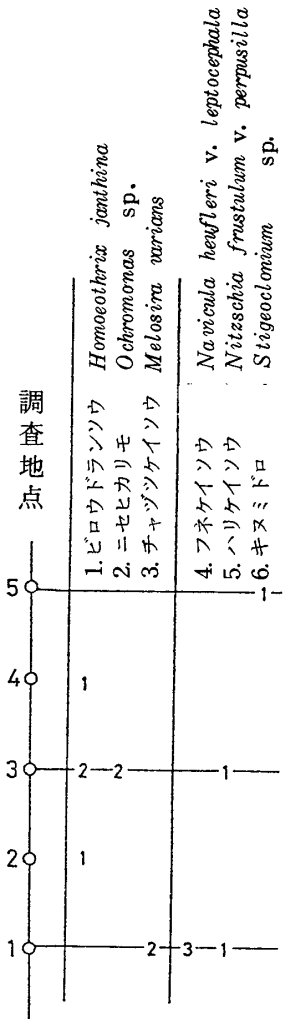 調査地点
5
4
3
2
1
1. ビロウドランソウ Homoeothrix janthina
2. ニセヒカリモ Ochromonas sp.
3. チャヅツケイソウ Melosira varians
4. フネケイソウ Navicula heufleri v. leptocephala
5. ハリケイソウ Nitzschia frustulum v. perpusilla
6. キヌミドロ Stigeoclonium sp.
1
1
2 2 1
1
2 3 1